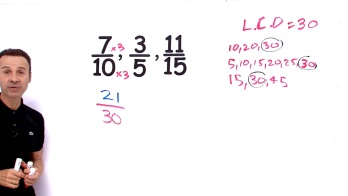 L.C.D = 30
7/10 ×3 ×3, 3/5, 11/15
10, 20, 30
5, 10, 15, 20, 25, 30,
15, 30, 45
21/30